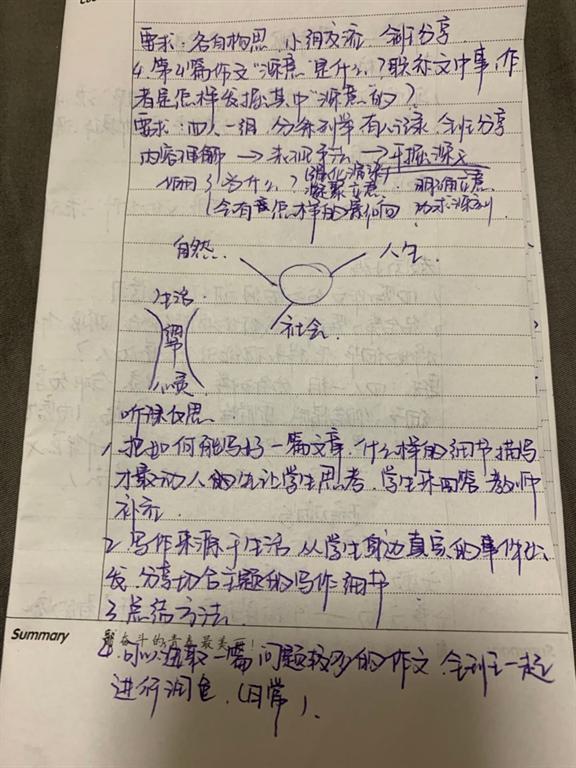 要求：各自构思，小组交流，全班分享
4.第4篇作文"深意"是什么？联系文中事，作
者是怎样发掘其中"深意"的？
要求：四人一组，分条列举有记录，全班分享
内容理解→表现手法→
作用？为什么？强化
凝聚立意 明确立意
(会有着怎样的影响 力求深刻
自然 人生
生活
社会
听课反思
1.把如何能写好一篇文章，什么样的细节描写
才最动人的 让学生思考，学生来回答 教师
补充
2.写作来源于生活 从学生身边真实的事件出
发，分享切合主题的写作细节
3.总结方法
Summary
奋斗的青春最美丽！
4.可以选取一篇问题较多的作文，全班一起
进行润色，(日常)．